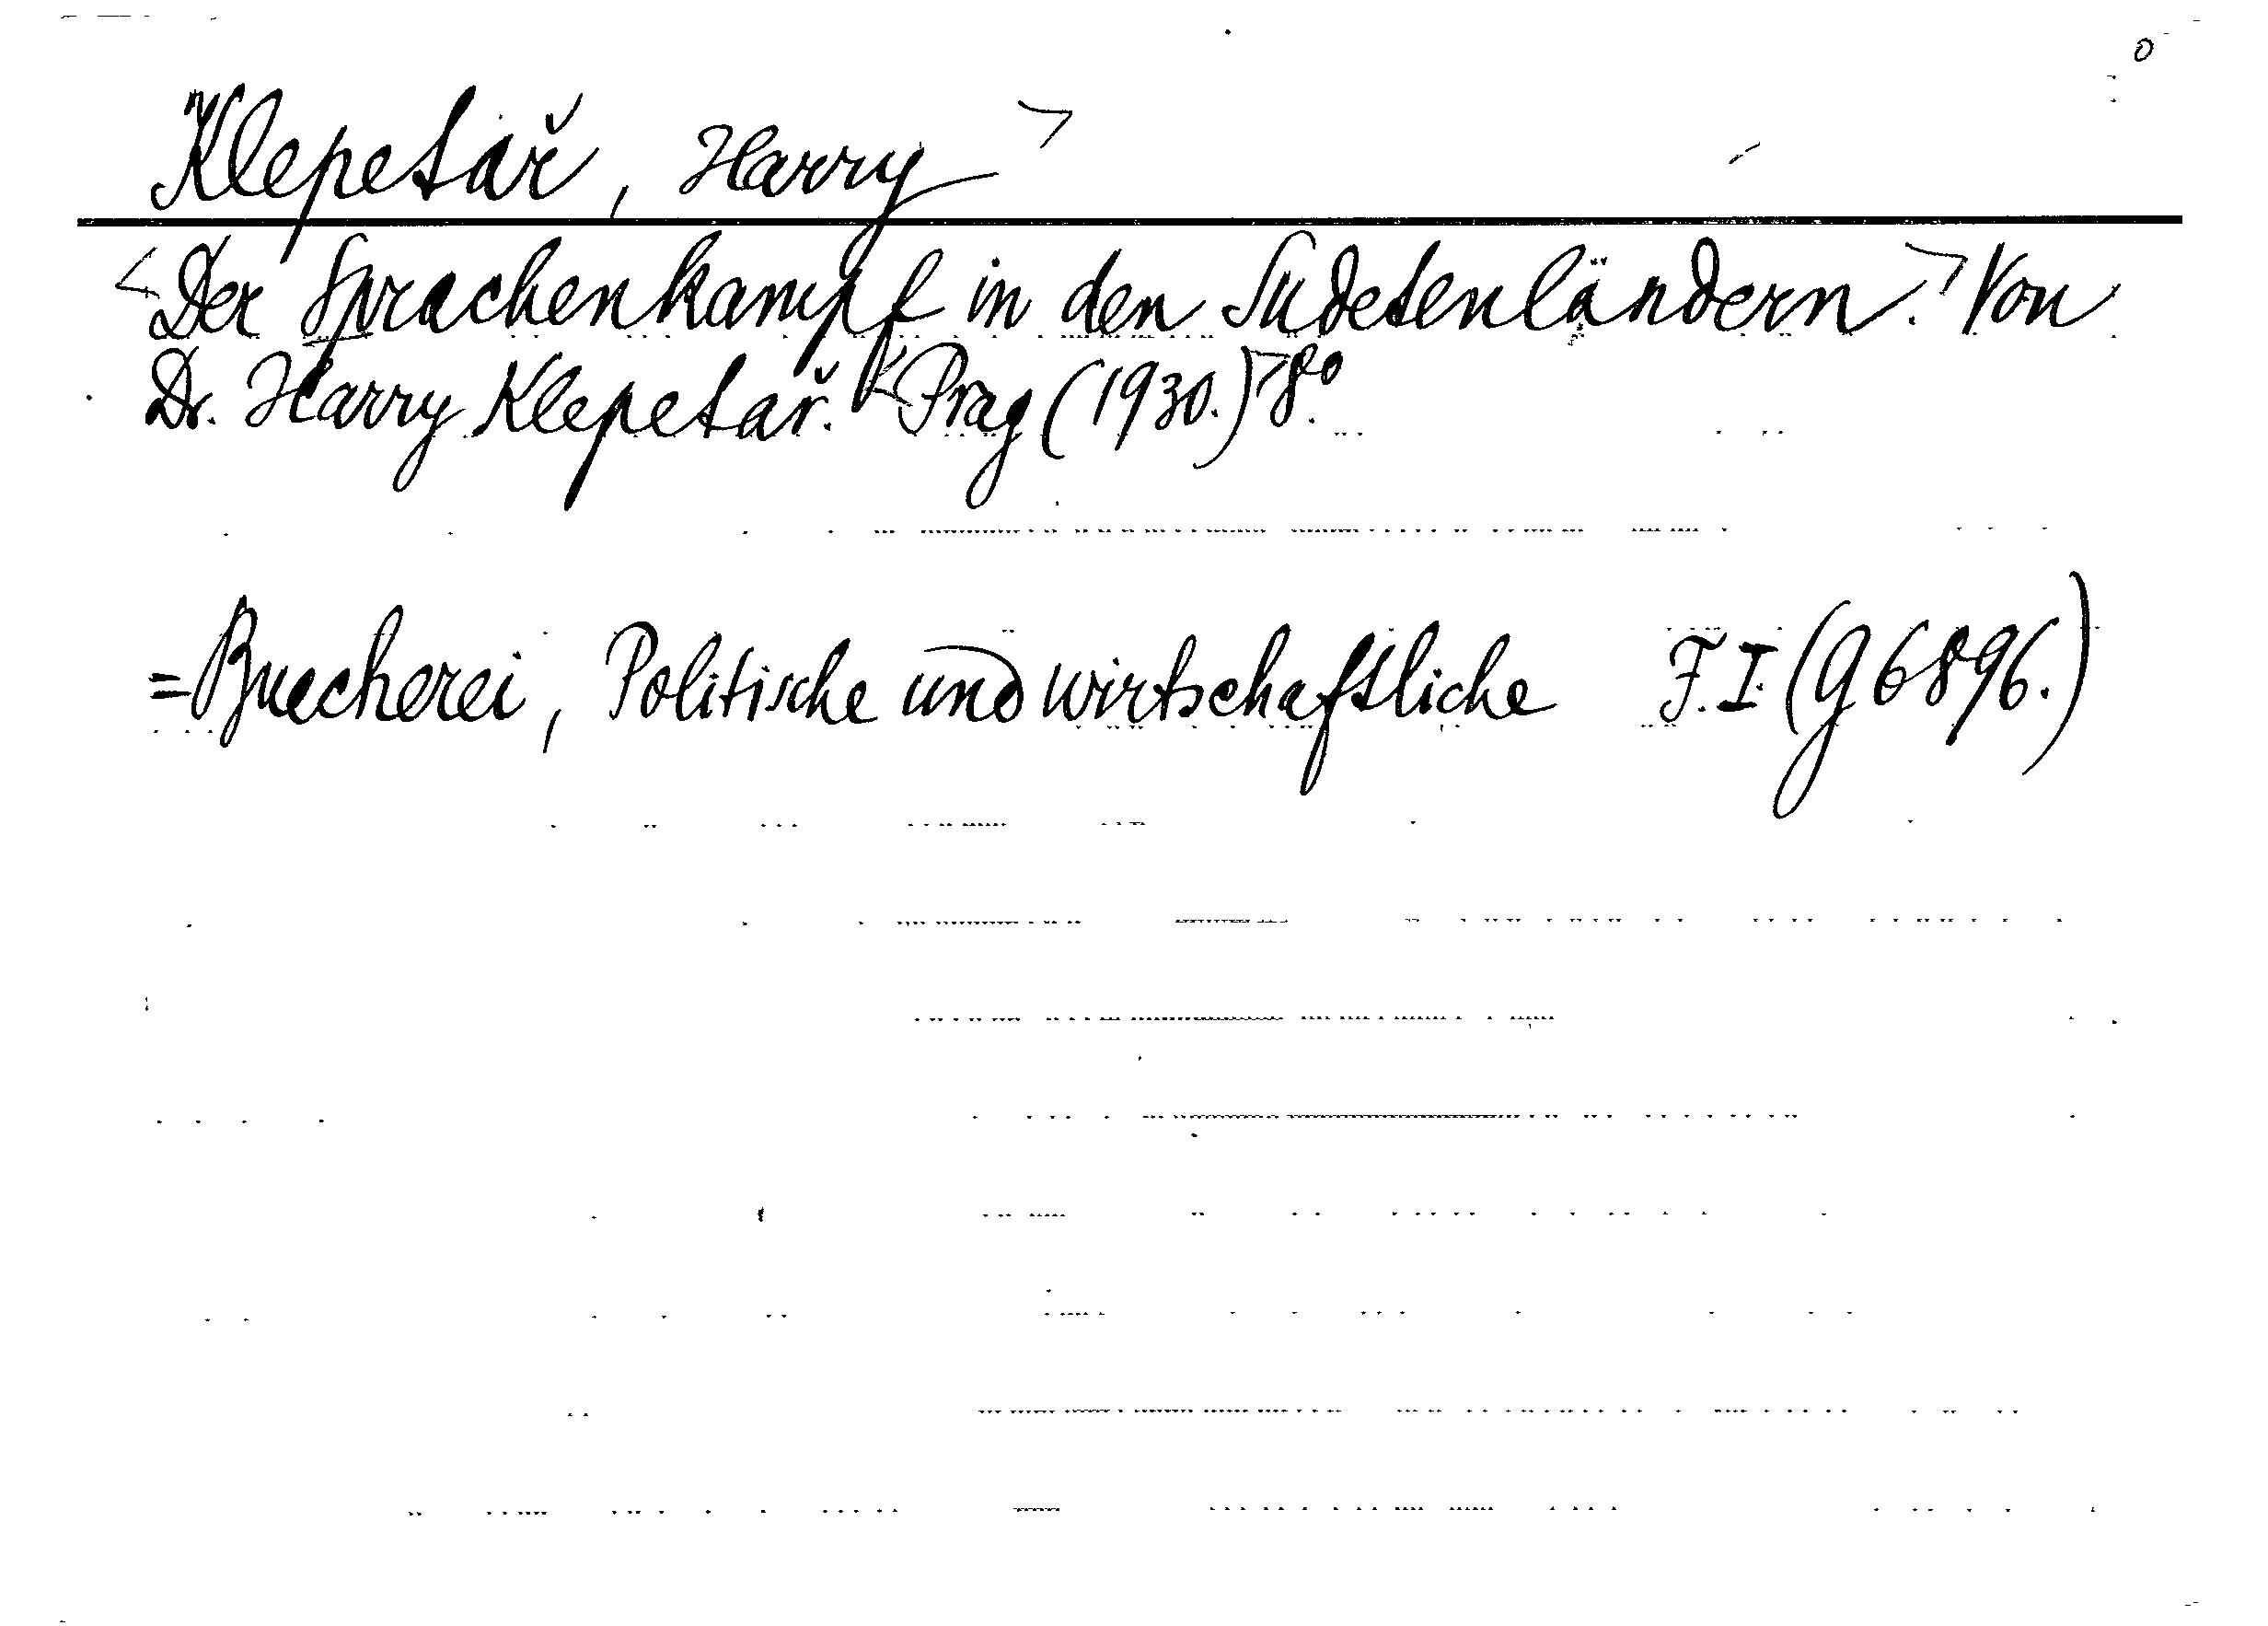 o
Klepetař, Harry >
< Der Sprachenkampf in den Sudetenländern. > Von
Dr. Harry Klepetař. < Prag (1930.) > 8°.
= Buecherei, Politische und wirtschaftliche F. I. (g 6896.)